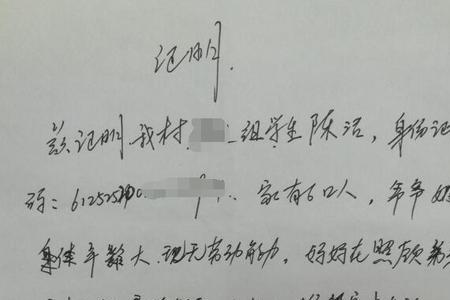 证明
兹证明我村 组学生陈洁，身份证
号：612525 家有6口人，爷爷奶
身体年龄大、现无劳动能力，妈妈在照顾弟